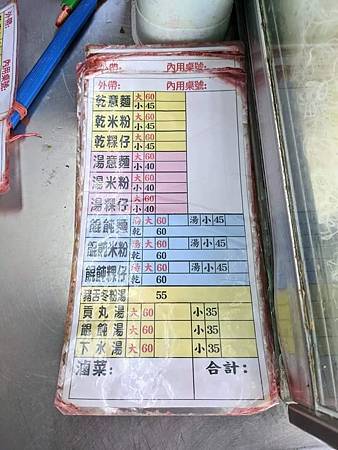 外帶:
內用桌號:
外帶: 內用桌號:
外帶: 內用桌號:
乾意麵 大60 小45
乾米粉 大60 小45
乾粿仔 大60 小45
湯意麵 大60 小40
湯米粉 大60 小40
湯粿仔 大60 小40
餛飩麵 湯大60 湯小45 乾60
餛飩米粉 湯大60 湯小45 乾60
餛飩粿仔 湯大60 湯小45 乾60
豬舌冬粉湯 55
貢丸湯 大60 小35
餛飩湯 大60 小35
下水湯 大60 小35
滷菜: 合計: